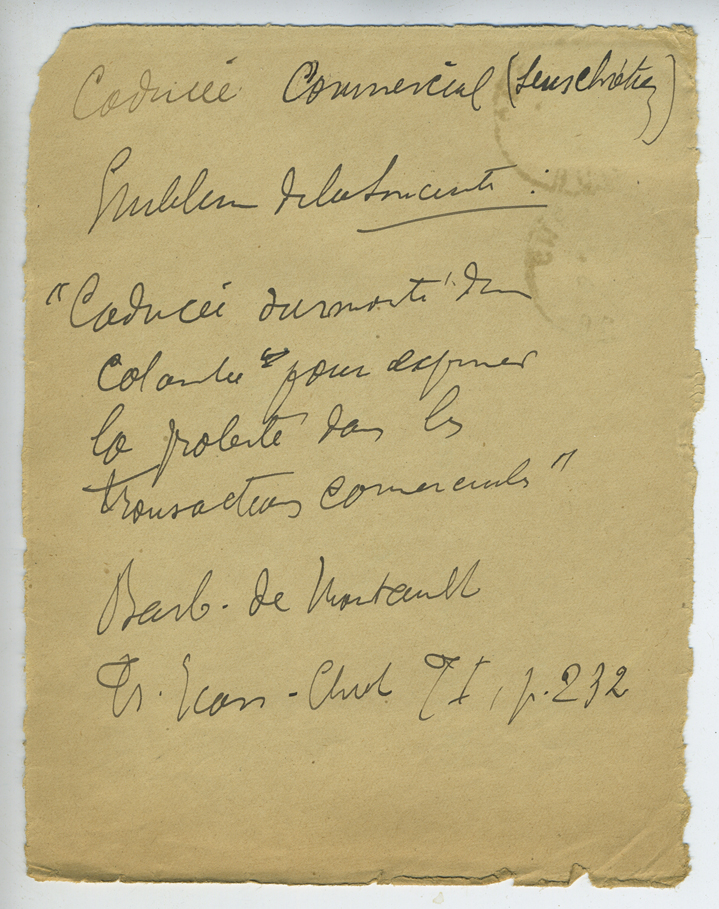 Caducée Commercial (sens chrétien)
Emblem de la Sincerité :
"Caducée surmonté d'un
colombe pour exprimer
la probité dans les
transactions comerciales"
Barb. de Montault
Tr. Icon - Chret T I, p. 232